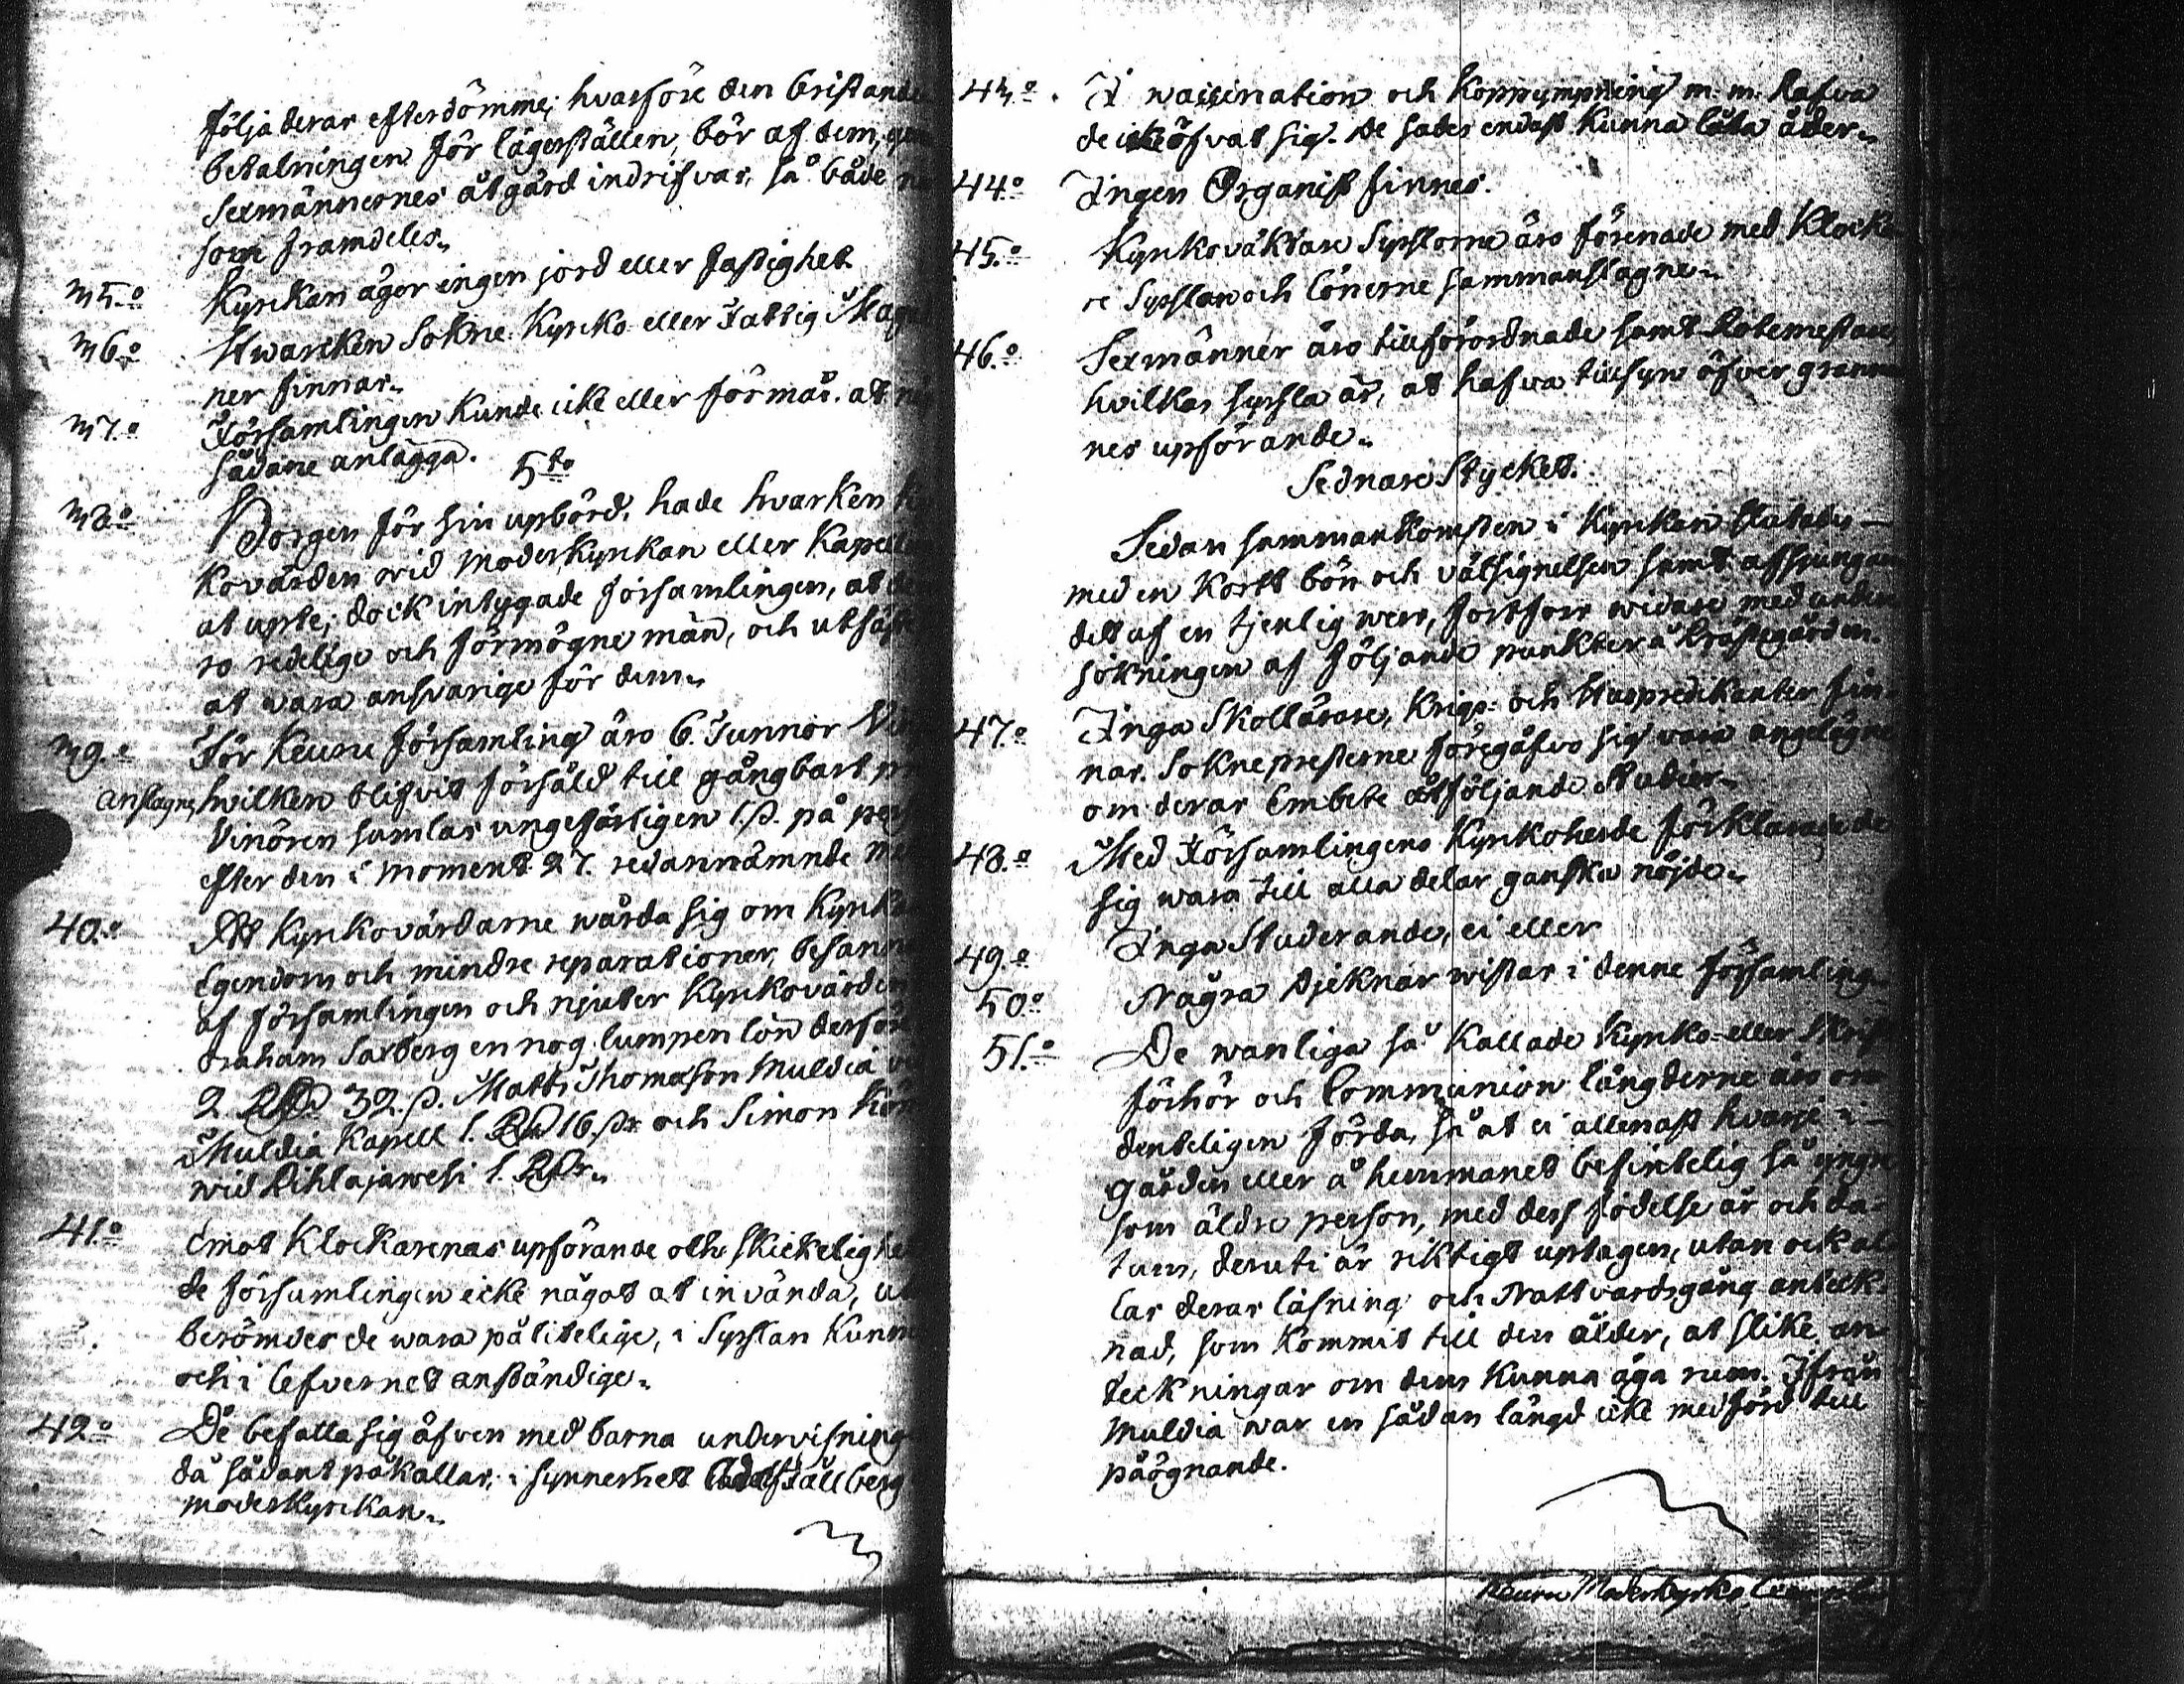 följa deras efterdömme; hvarföre den bristande
betalningen för lägerställen, bör af dem,
Sexmännernes åtgärd indrifvas, så både
som framdeles.
35:o Kyrkan äger ingen jord eller fastighet.
36:o Hwarken Sokne Kyrko- eller Fattig Maga
ner finnas.
37:o Församlingen Kunde icke eller förmås at
sådane anlägga.
5:to
38:o Borgen för sin upbörd, hade hvarken
kovärden wid Moderkyrkan eller Kapellen
at upte; dock intygade församlingen, at
ro redelige och förmögne män, och utfäste
at wara answarige för dem.
39:o För Keuru församling äro 6. Tunnor
anslagne, hwilken blifvit försåld till gångbart
Vinören samlas ungefärligen 1. s. på
efter den i moment 27. redannämnde
40:o Att Kyrkovärdarne wårda sig om Kyrkans
Egendom och mindre reparationer, besann
af församlingen och njuter Kyrkovärden
braham Sarberg en nog lumpen lön derföre
2. Rd 32. s. Matts Thomasson Muldia
Muldia Kapell 1. Rd 16. s. och Simon
wid Pihlajawesi 1. Rd.
41:o Emot Klockarenas upförande och skickelighet
de församlingen icke något at invända,
berömdes de wara pålitelige, i Sysslan Kunn
och i lefvernet anständige.
42:o De befatta sig äfven med barna undervisning
då sådant påkallas, i synnerhet Adolf Tällberg
moderkyrkan.
43:o I vaccination och Koppympning m. m. hafva
de icke öfvat sig. De sades endast Kunna låta åder.
44:o Ingen Organist finnes.
45:o Kyrkoväktare Sysslorne äro förenade med Klocka
re Sysslan och lönerne sammanslagne.
46:o Sexmänner äro tillförordnade samt Rotemestare,
hvilkas syssla är, at hafva tillsyn öfver grannar
nes upförande.
Sednare Stycket.
Sedan sammankomsten i Kyrkan slutades
med en Kort bön och välsignelsen samt afsjungan
det af en tjenlig vers, fortfors widare med under
sökningen af följande punkter å Prästegården.
47:o Inga Skollärare, Krigs- och Huspredikanter fin
nas. Soknepresterne föregåfvo sig vara angelägne
om deras Embete åtföljande Studier.
48:o Med Församlingens Kyrkoherde förklarade de
sig wara till alla delar ganska nöjde.
49:o Inga Studerande, ei eller
50:o Några Djeknar wistas i denne församling.
51:o De wanliga så Kallade Kyrko- eller Skrift
förhör och Communion längderne äro or
denteligen förda, så at ei allenast hvarje i
gården eller å hemmanet befintelig så yngre
som äldre person, med dess födelse år och da
tum, deruti är riktigt uptagen, utan ock al
las deras läsning och Nattvardsgång anteck
nad, som Kommit till den ålder, at slike an
teckningar om dem Kunna äga rum. Ifrån
Muldia war en sådan längd icke medförd till
påögnande.
Keuru Moderkyrko